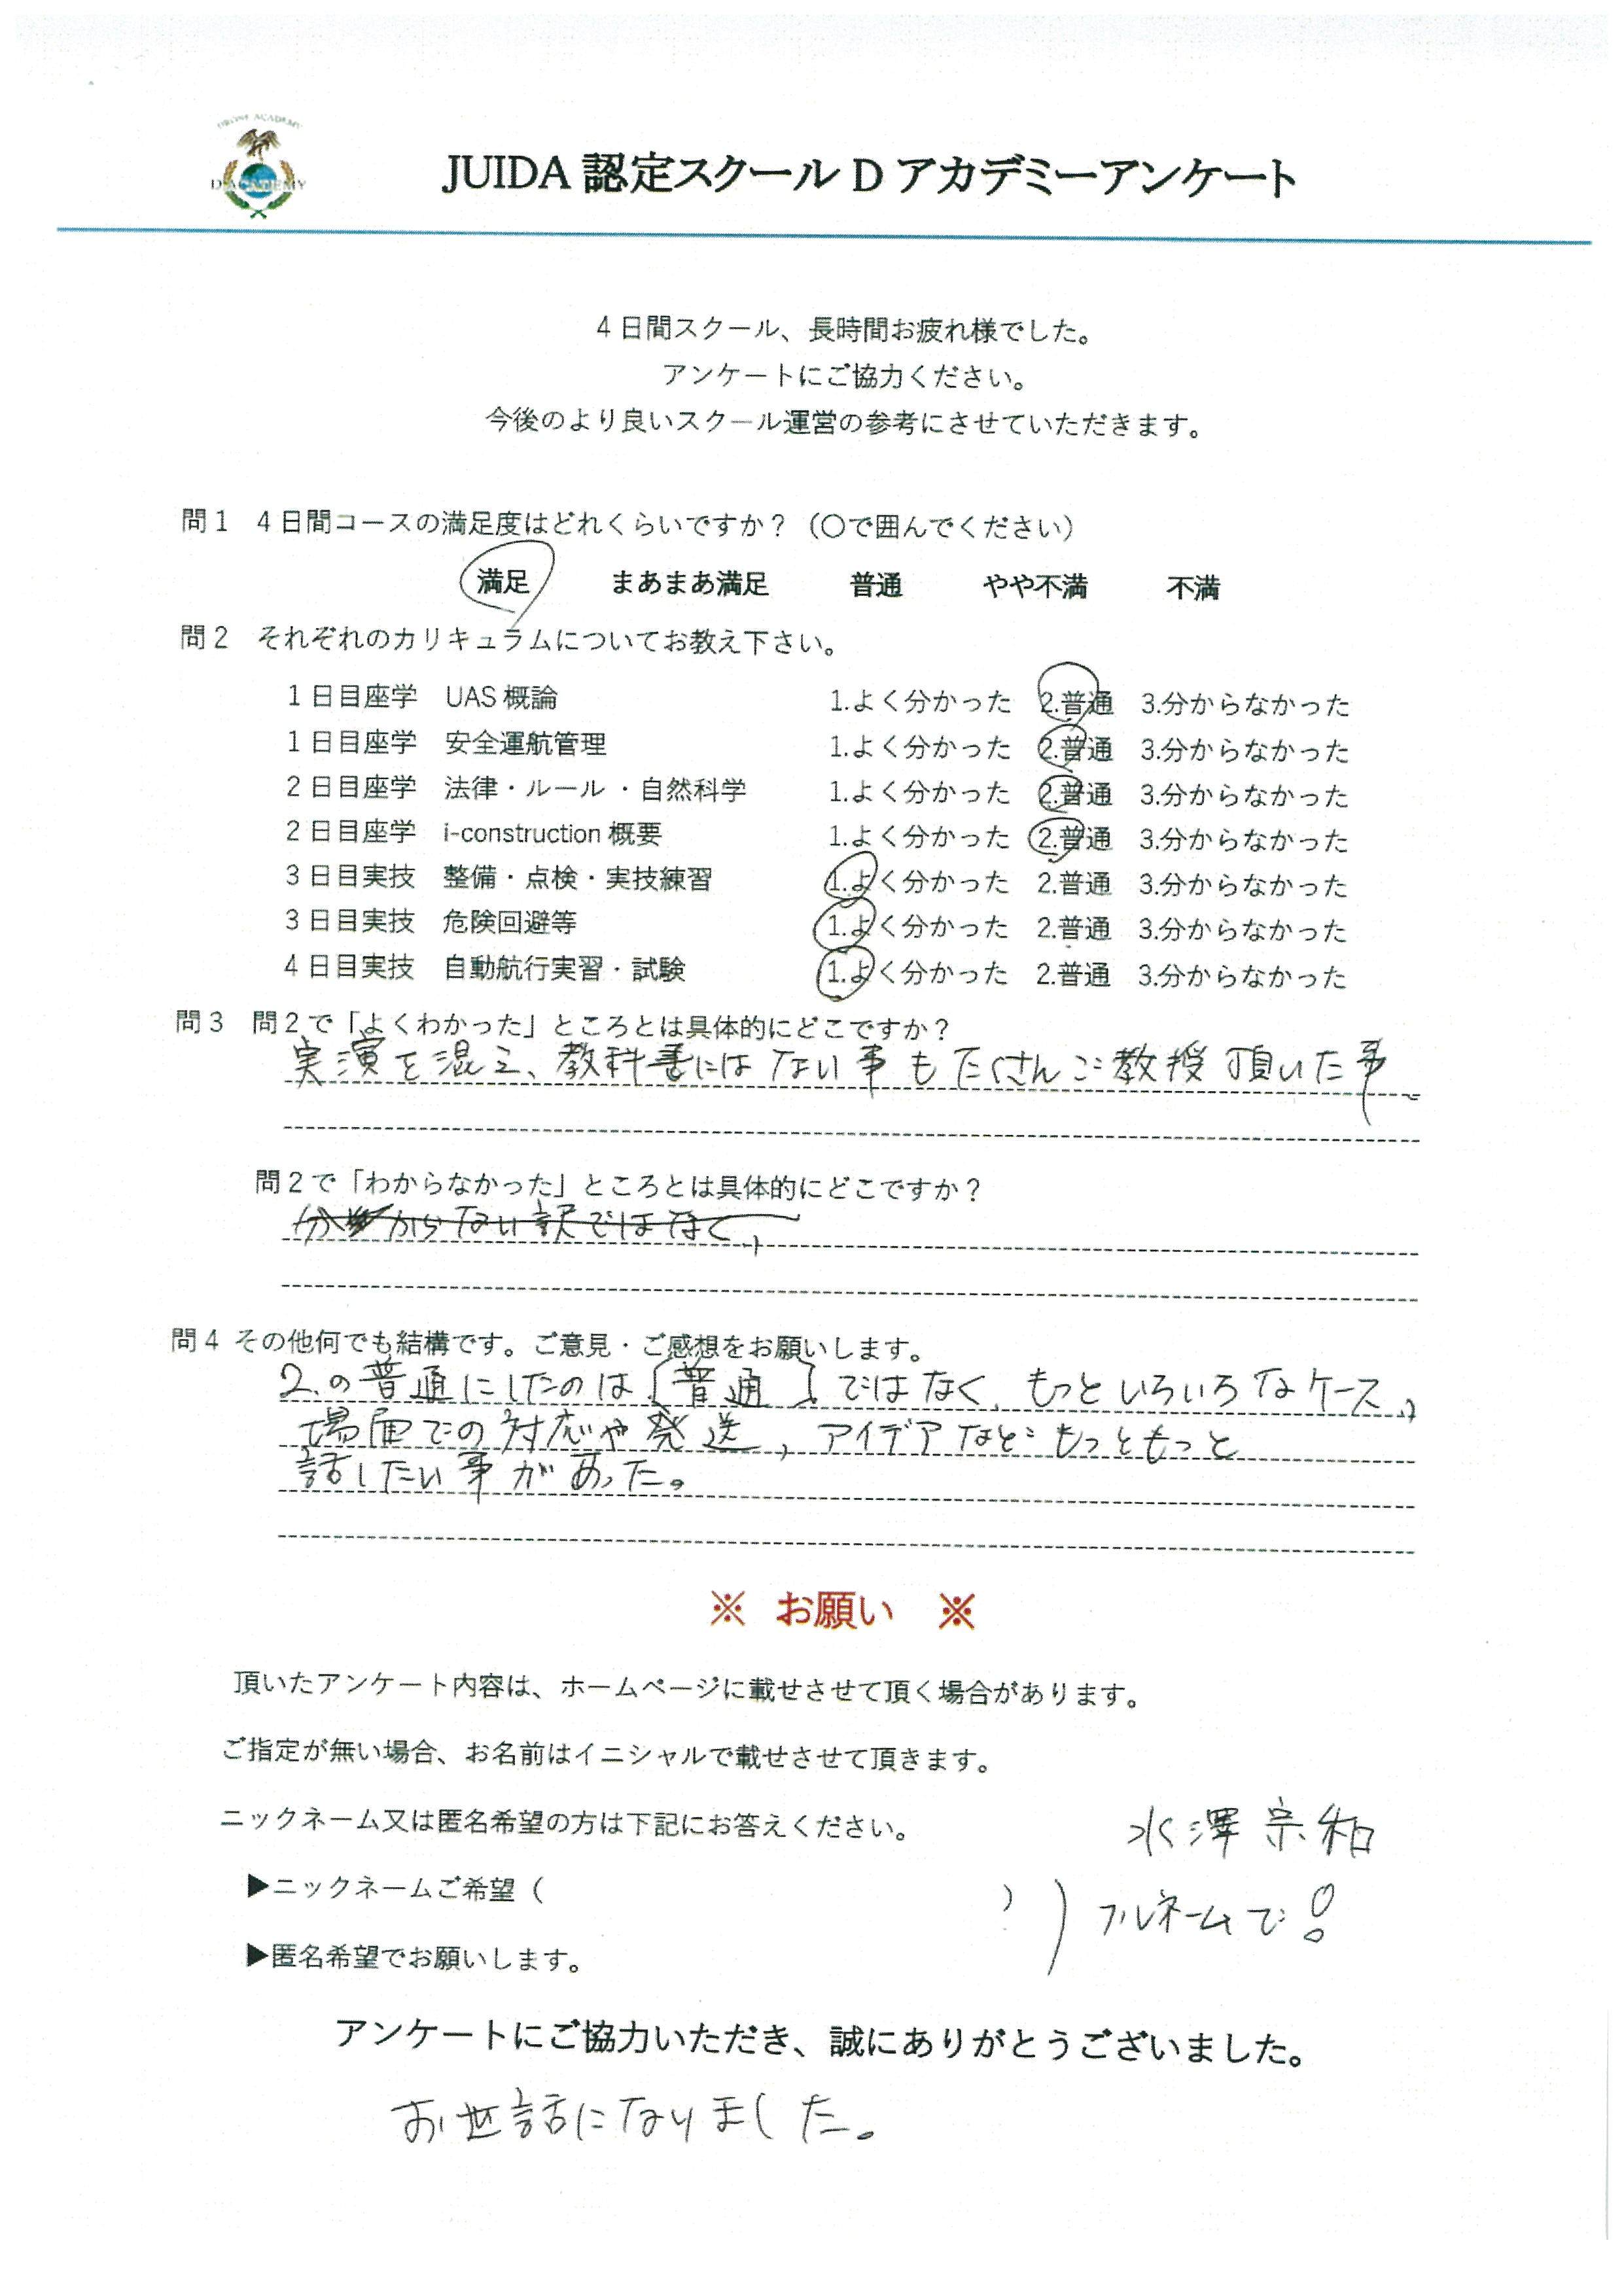 DRONE ACADEMY
D ACADEMY
JUIDA 認定スクール D アカデミーアンケート
4 日間スクール、長時間お疲れ様でした。
アンケートにご協力ください。
今後のより良いスクール運営の参考にさせていただきます。
問 1 4 日間コースの満足度はどれくらいですか？（〇で囲んでください）
満足 まあまあ満足 普通 やや不満 不満
問 2 それぞれのカリキュラムについてお教え下さい。
1 日目座学 UAS 概論 1.よく分かった 2.普通 3.分からなかった
1 日目座学 安全運航管理 1.よく分かった 2.普通 3.分からなかった
2 日目座学 法律・ルール・自然科学 1.よく分かった 2.普通 3.分からなかった
2 日目座学 i-construction 概要 1.よく分かった 2.普通 3.分からなかった
3 日目実技 整備・点検・実技練習 1.よく分かった 2.普通 3.分からなかった
3 日目実技 危険回避等 1.よく分かった 2.普通 3.分からなかった
4 日目実技 自動航行実習・試験 1.よく分かった 2.普通 3.分からなかった
問 3 問 2 で「よくわかった」ところとは具体的にどこですか？
実演を混え、教科書にはない事もたくさんご教授頂いた事
問 2 で「わからなかった」ところとは具体的にどこですか？
分からない訳ではなく、
問 4 その他何でも結構です。ご意見・ご感想をお願いします。
2.の普通にしたのは〔普通〕ではなく、もっといろいろなケース、
場面での対応や発送、アイデアなどもっともっと
話したい事があった。
※ お願い ※
頂いたアンケート内容は、ホームページに載せさせて頂く場合があります。
ご指定が無い場合、お名前はイニシャルで載せさせて頂きます。
ニックネーム又は匿名希望の方は下記にお答えください。
水澤宗和
▶ニックネームご希望（ ）
フルネームで！
▶匿名希望でお願いします。
アンケートにご協力いただき、誠にありがとうございました。
お世話になりました。